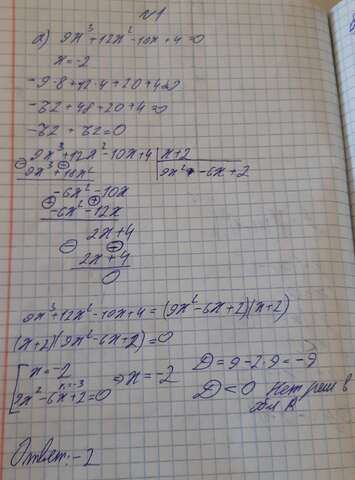 №1
а) 9x³+12x²-10x+4=0
x=-2
-9·8+12·4+20+4=0
-72+48+20+4=0
-72+72=0
9x³+12x²-10x+4 | x+2
9x³+18x² | 9x²-6x+2
-6x²-10x
-6x²-12x
2x+4
2x+4
0
9x³+12x²-10x+4=(9x²-6x+2)(x+2)
(x+2)(9x²-6x+2)=0
x=-2
k=-3
9x²-6x+2=0
⇒x=-2
D=9-2·9=-9
D<0 Нет реш в
обл R.
Ответ:-2